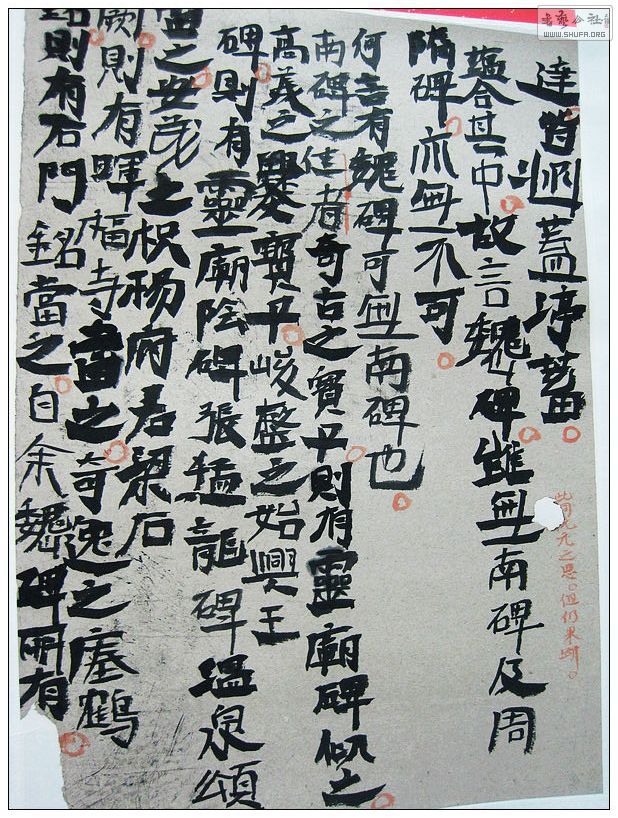 書藝公社
WWW.SHUFA.ORG
達皆涵蓋渟蓄
蘊合其中故言魏碑雖無南碑及周
隋碑亦無不可
何言有魏碑可無南碑也
南碑之佳者奇古之寶子則有靈廟碑似之
高美之爨寶子峻整之始興王
碑則有靈廟陰碑張猛龍碑溫泉頌
當之安茂之枳楊府君梁石
闕則有暉福寺當之奇逸之瘞鶴
銘則有石門銘當之自余魏碑所有